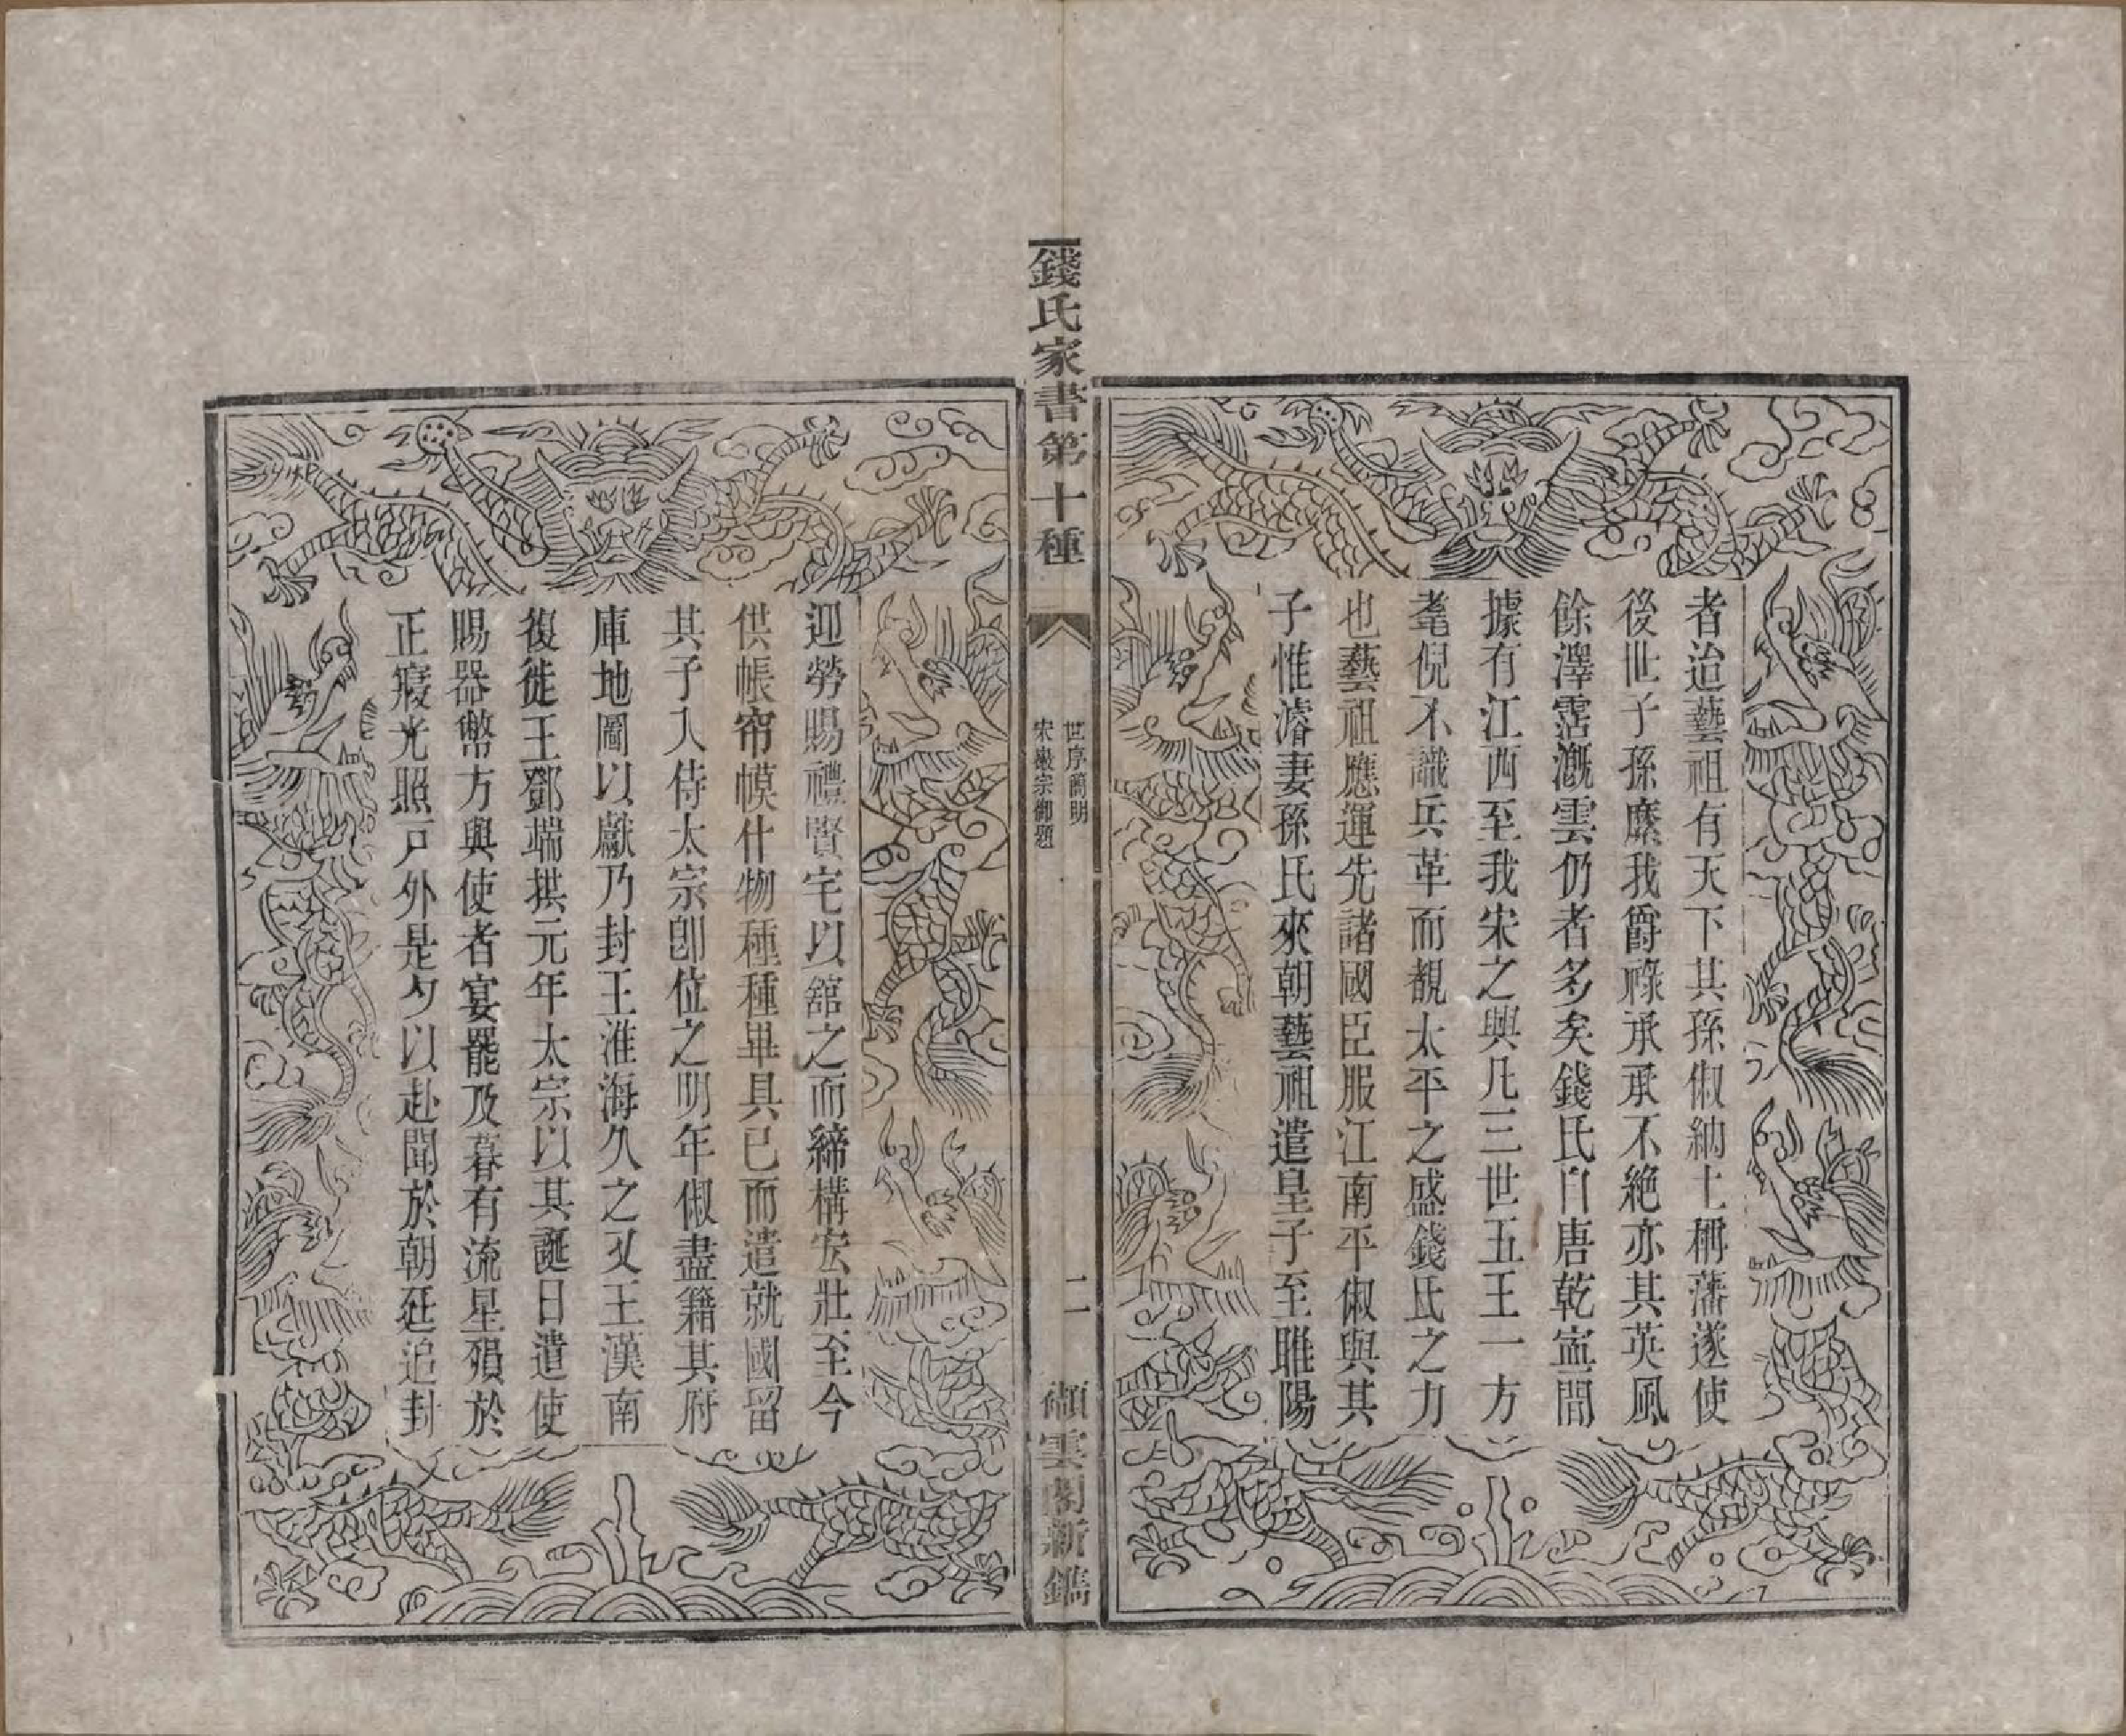 者迨藝祖有天下其孫俶納土稱藩遂使
後世子孫縻我爵祿承承不絕亦其英風
餘澤霑漑雲仍者多矣錢氏自唐乾寍間
據有江西至我宋之興凡三世五王一方
耄倪不識兵革而覩太平之盛錢氏之力
也藝祖應運先諸國臣服江南平俶與其
子惟濬妻孫氏來朝藝祖遣皇子至睢陽
錢氏家書第十種
世序簡明
宋徽宗御題
二
擷雲閣新鐫
迎勞賜禮賢宅以舘之而締構宏壯至今
供帳帟幙什物種種畢具已而遣就國留
其子入侍太宗卽位之明年俶盡籍其府
庫地圖以獻乃封王淮海久之又王漢南
復徙王鄧端拱元年太宗以其誕日遣使
賜器幣方與使者宴罷及暮有流星殞於
正寢光照戸外是夕以赴聞於朝廷追封